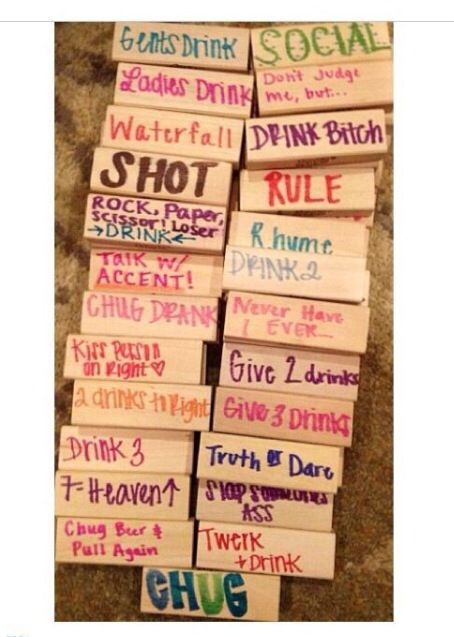 Gents Drink
SOCIAL
Ladies Drink
Don't Judge
me, but...
Waterfall
DRINK Bitch
SHOT
RULE
ROCK, Paper,
Scissor! Loser
→DRINK←
Rhume
Talk w/
ACCENT!
DRINK 2
CHUG DRANK
Never Have
I EVER...
Kiss Person
on Right ♡
Give 2 drinks
2 drinks to Right
Give 3 Drinks
Drink 3
Truth or Dare
7=Heaven↑
Slap Someones
ASS
Chug Beer &
Pull Again
Twerk
+ Drink
CHUG